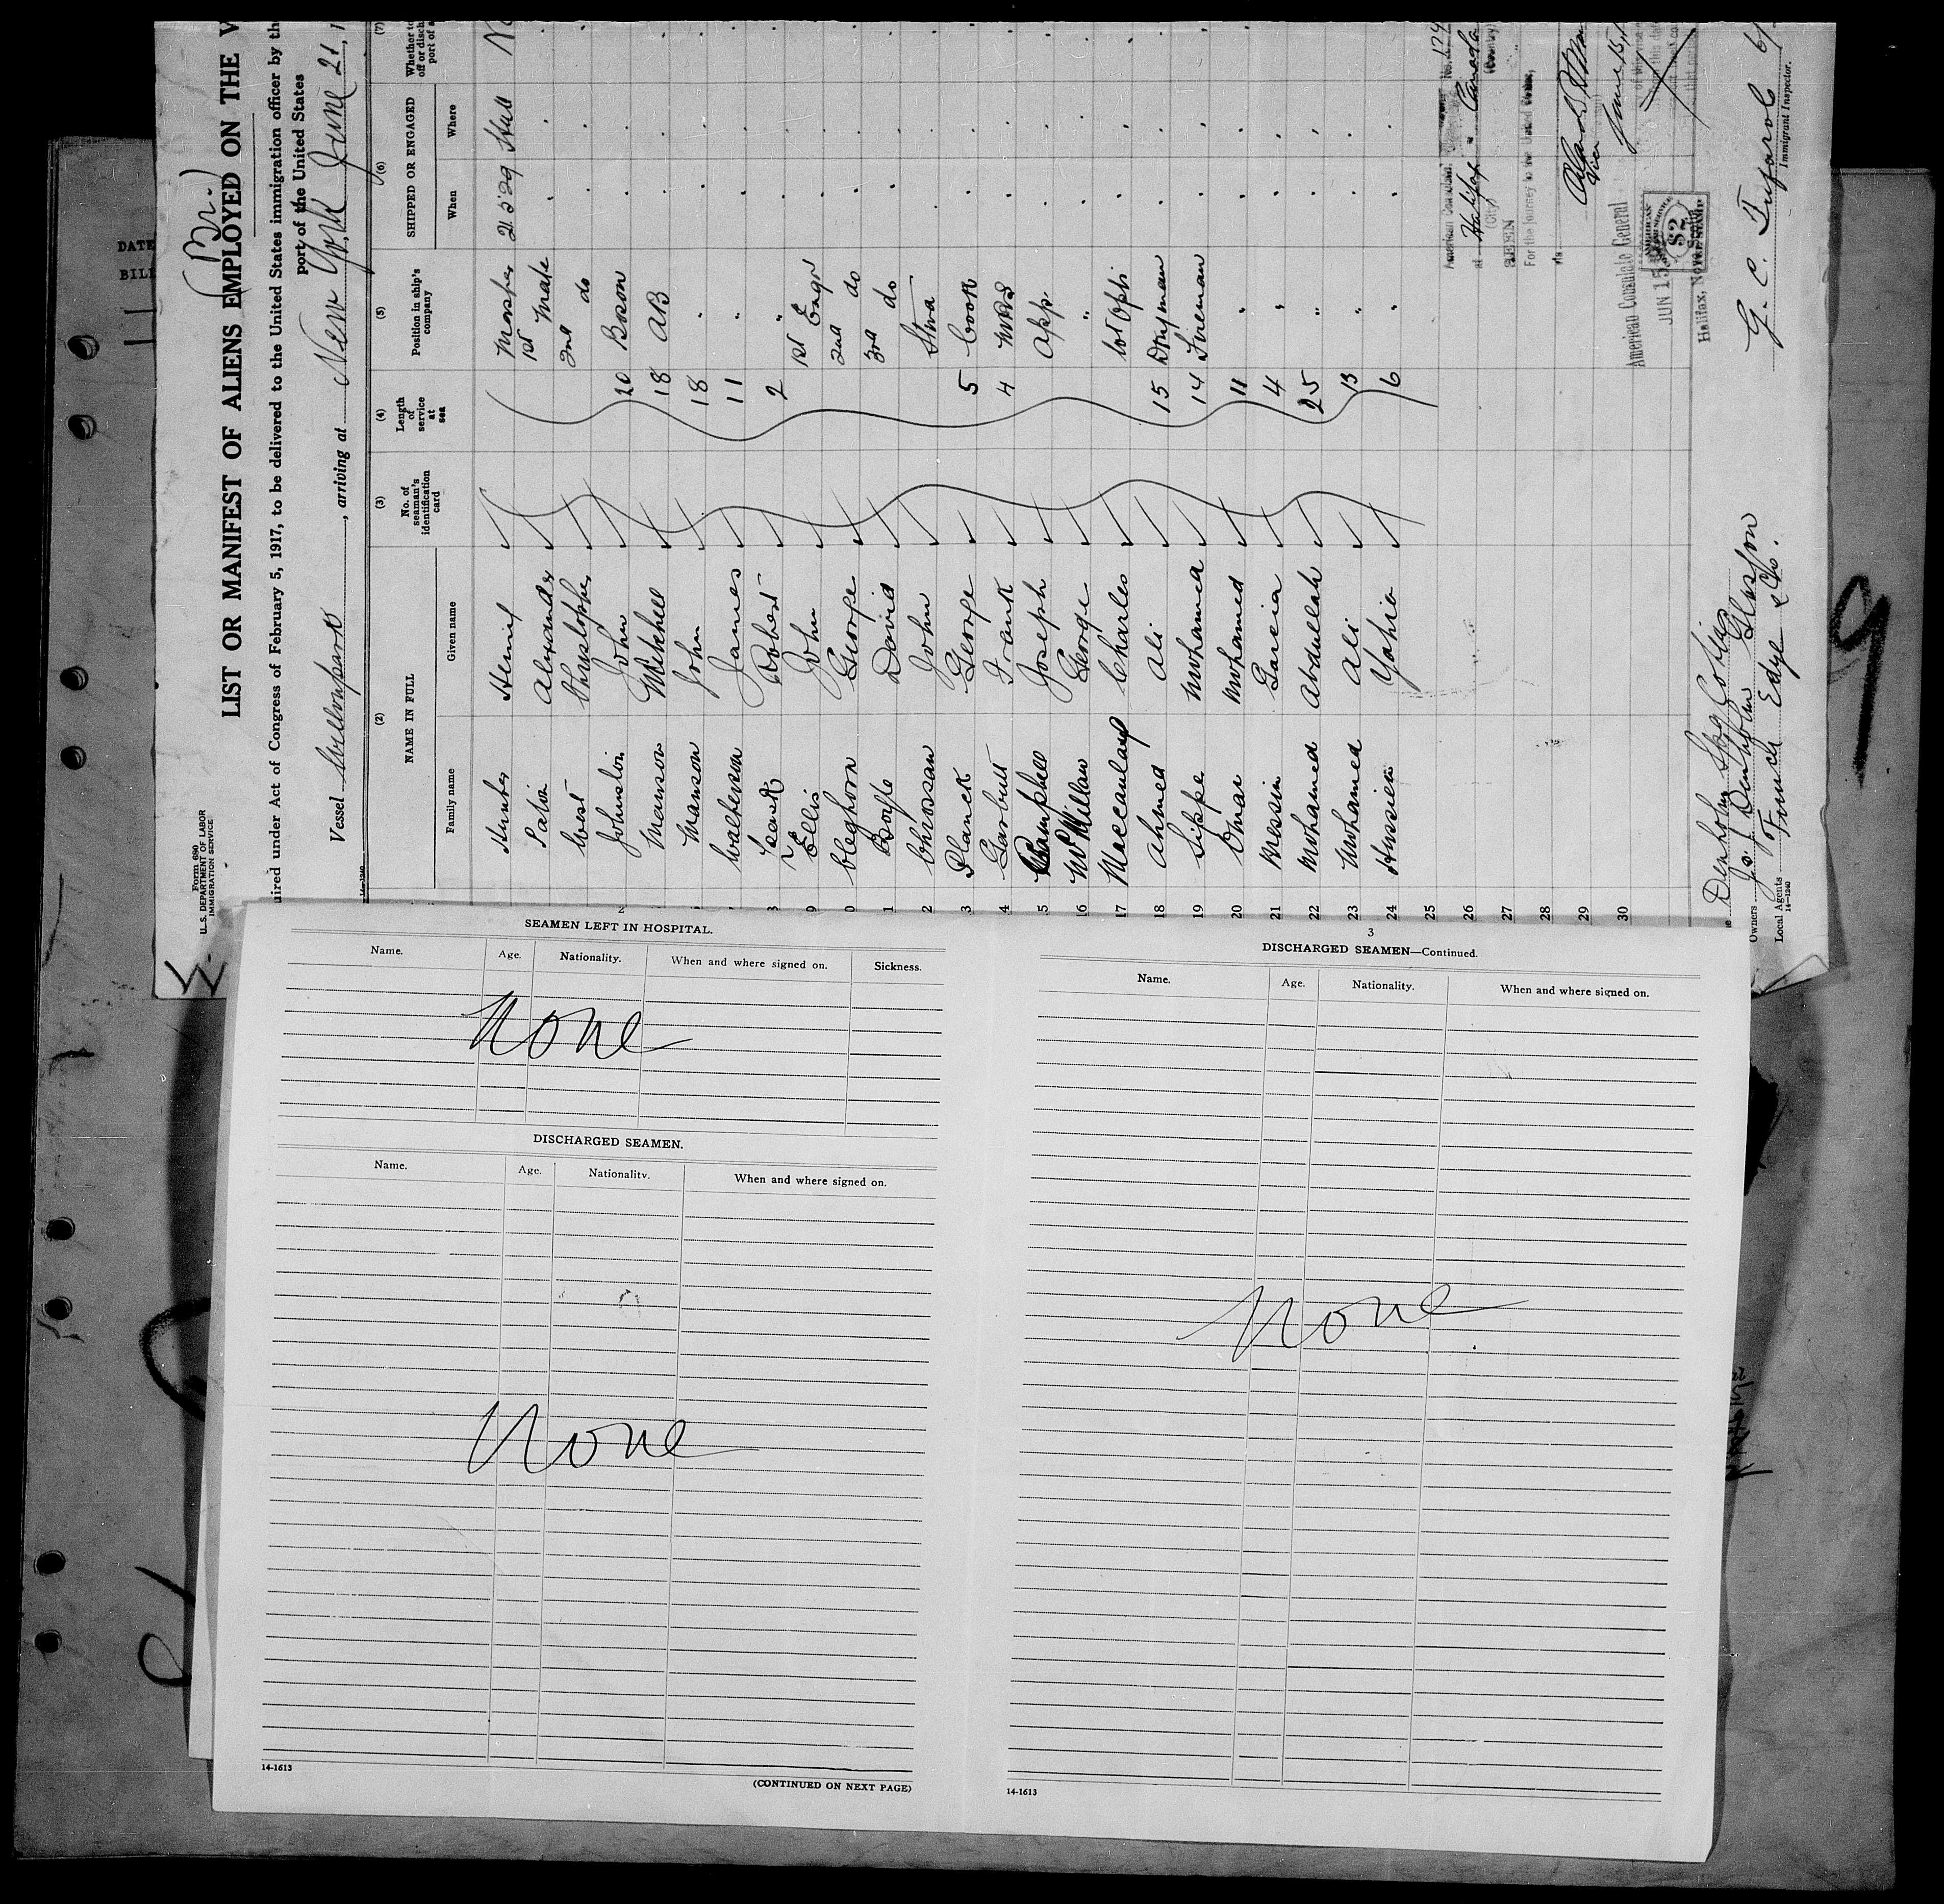 Form 680
U.S. DEPARTMENT OF LABOR
IMMIGRATION SERVICE
(Br.)
LIST OR MANIFEST OF ALIENS EMPLOYED ON THE V
uired under Act of Congress of February 5, 1917, to be delivered to the United States immigration officer by th
port of the United States
Vessel , arriving at New York June 21, 1
14-1240
(2) (3) (4) (5) (6) (7)
NAME IN FULL No. of seaman's identification card Length of service at sea Position in ship's company SHIPPED OR ENGAGED Whether to
off or disch
port of a
Family name Given name When Where
Hunter Master 21.5.29 Hull
Alexander 1st Mate
West Christopher 2nd do
Johnston John 20 Bosun
Manson Mitchell 18 AB
Manson John 18 "
Walterson James 11 "
Robert 2 "
Ellis John 1st Engr
Cleghorn George 2nd do
1 Boyle David 3rd do
2 John Stwd
3 Planck George 5 Cook
4 Garbutt Frank 4 MRS
5 Campbell Joseph App.
16 McMillan George "
17 Maccaulay Charles
18 Ahmed Ali 15 Dkyman
19 Mohamed 14 Fireman
20 Omar Mohamed 11 "
21 4 "
22 Mohamed Abdullah 25 "
23 Mohamed Ali 13 "
24 Hussien Yahia 6 "
25
26
27
28
29
30
American Consulate General
at Halifax Canada
(City) (Country)
SEEN
For the journey to the United States,
via
Vice
June 15,
American Consulate General
JUN 15
$2
Halifax, Nova Scotia
Owners
Local Agents Funch Edye & Co.
14-1240
Immigrant Inspector.
DATE
BILL
SEAMEN LEFT IN HOSPITAL.
Name. Age. Nationality. When and where signed on. Sickness.
None
DISCHARGED SEAMEN.
Name. Age. Nationality. When and where signed on.
None
14-1613
(CONTINUED ON NEXT PAGE)
3
DISCHARGED SEAMEN—Continued.
Name. Age. Nationality. When and where signed on.
None
14-1613
9